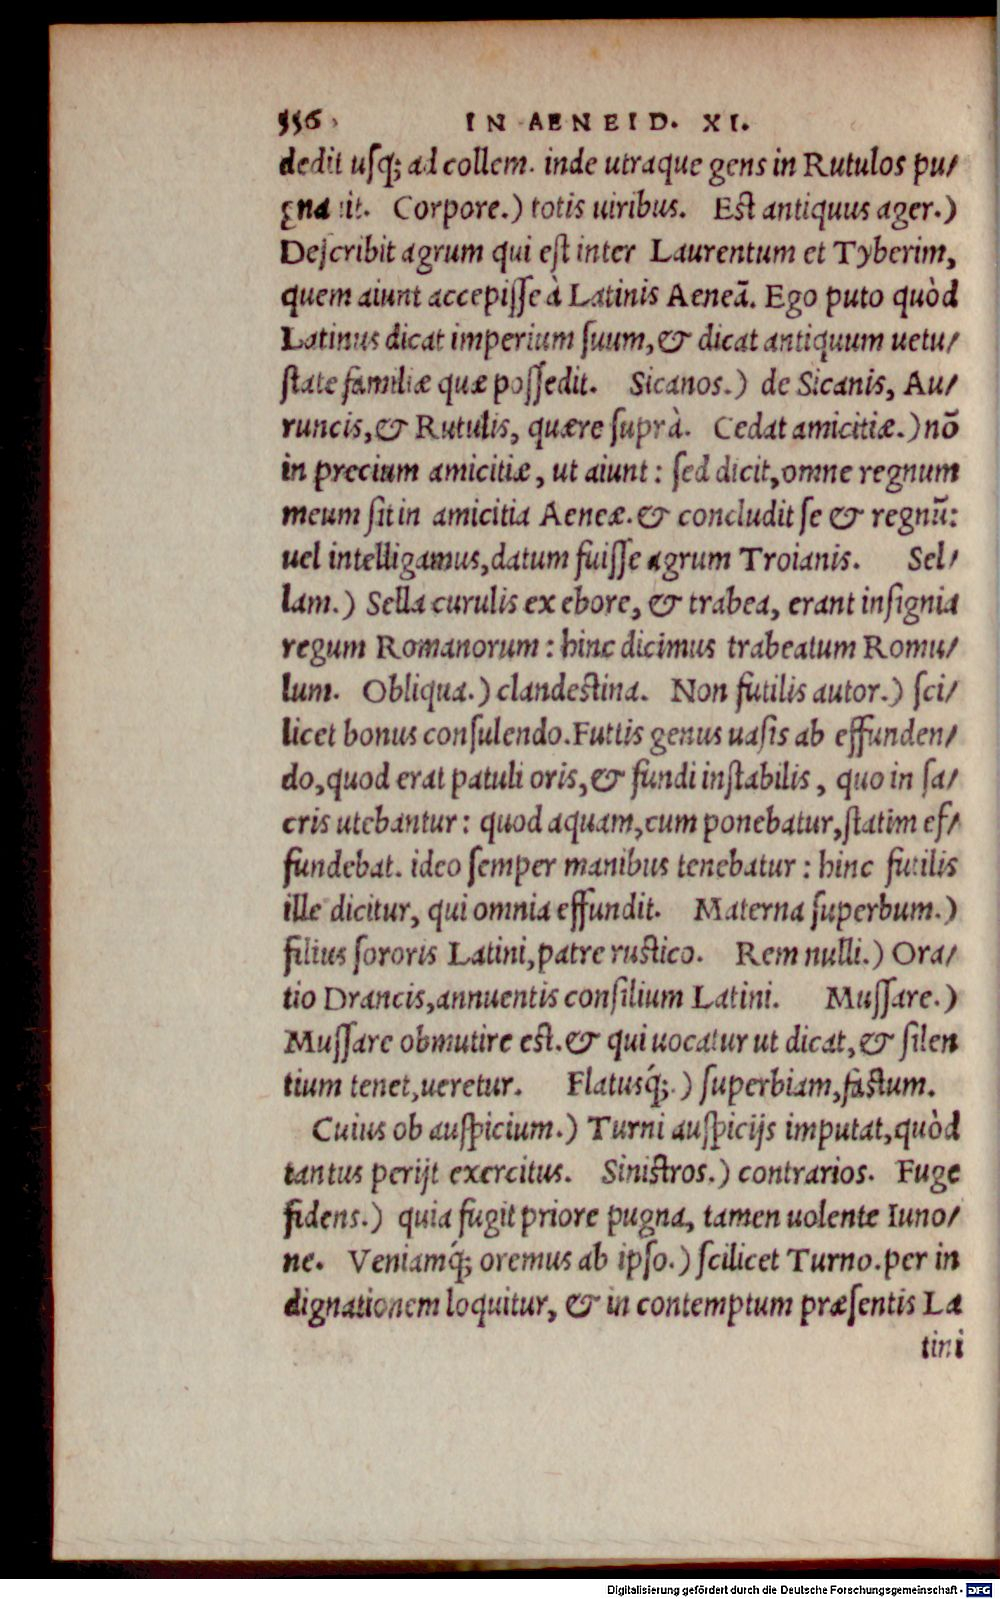 556 IN AENEID. XI.
dedit uſq; ad collem. inde utraque gens in Rutulos pu/
gnauit. Corpore.) totis uiribus. Eſt antiquus ager.)
Deſcribit agrum qui eſt inter Laurentum et Tyberim,
quem aiunt accepiſſe à Latinis Aeneā. Ego puto quòd
Latinus dicat imperium ſuum, & dicat antiquum uetu/
ſtate familiæ quæ poſſedit. Sicanos.) de Sicanis, Au/
runcis, & Rutulis, quære ſuprà. Cedat amicitiæ.) nō
in precium amicitiæ, ut aiunt: ſed dicit, omne regnum
meum ſit in amicitia Aeneæ. & concludit ſe & regnū:
uel intelligamus, datum fuiſſe agrum Troianis. Sel/
lam.) Sella curulis ex ebore, & trabea, erant inſignia
regum Romanorum: hinc dicimus trabeatum Romu/
lum. Obliqua.) clandeſtina. Non futilis autor.) ſci/
licet bonus conſulendo. Futtis genus uaſis ab effunden/
do, quod erat patuli oris, & fundi inſtabilis, quo in ſa/
cris utebantur: quod aquam, cum ponebatur, ſtatim ef/
fundebat. ideo ſemper manibus tenebatur: hinc futilis
ille dicitur, qui omnia effundit. Materna ſuperbum.)
filius ſororis Latini, patre ruſtico. Rem nulli.) Ora/
tio Drancis, annuentis conſilium Latini. Muſſare.)
Muſſare obmutire eſt. & qui uocatur ut dicat, & ſilen
tium tenet, ueretur. Flatusq́;.) ſuperbiam, faſtum.
Cuius ob auſpicium.) Turni auſpicijs imputat, quòd
tantus perijt exercitus. Siniſtros.) contrarios. Fuge
fidens.) quia fugit priore pugna, tamen uolente Iuno/
ne. Veniamq́; oremus ab ipſo.) ſcilicet Turno. per in
dignationem loquitur, & in contemptum præſentis La
tini
Digitalisierung gefördert durch die Deutsche Forschungsgemeinschaft - DFG